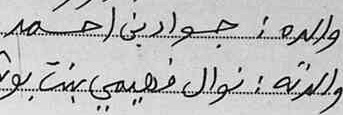 والده : جوادبن احمد
والدته : نوال فهيمي بنت بو